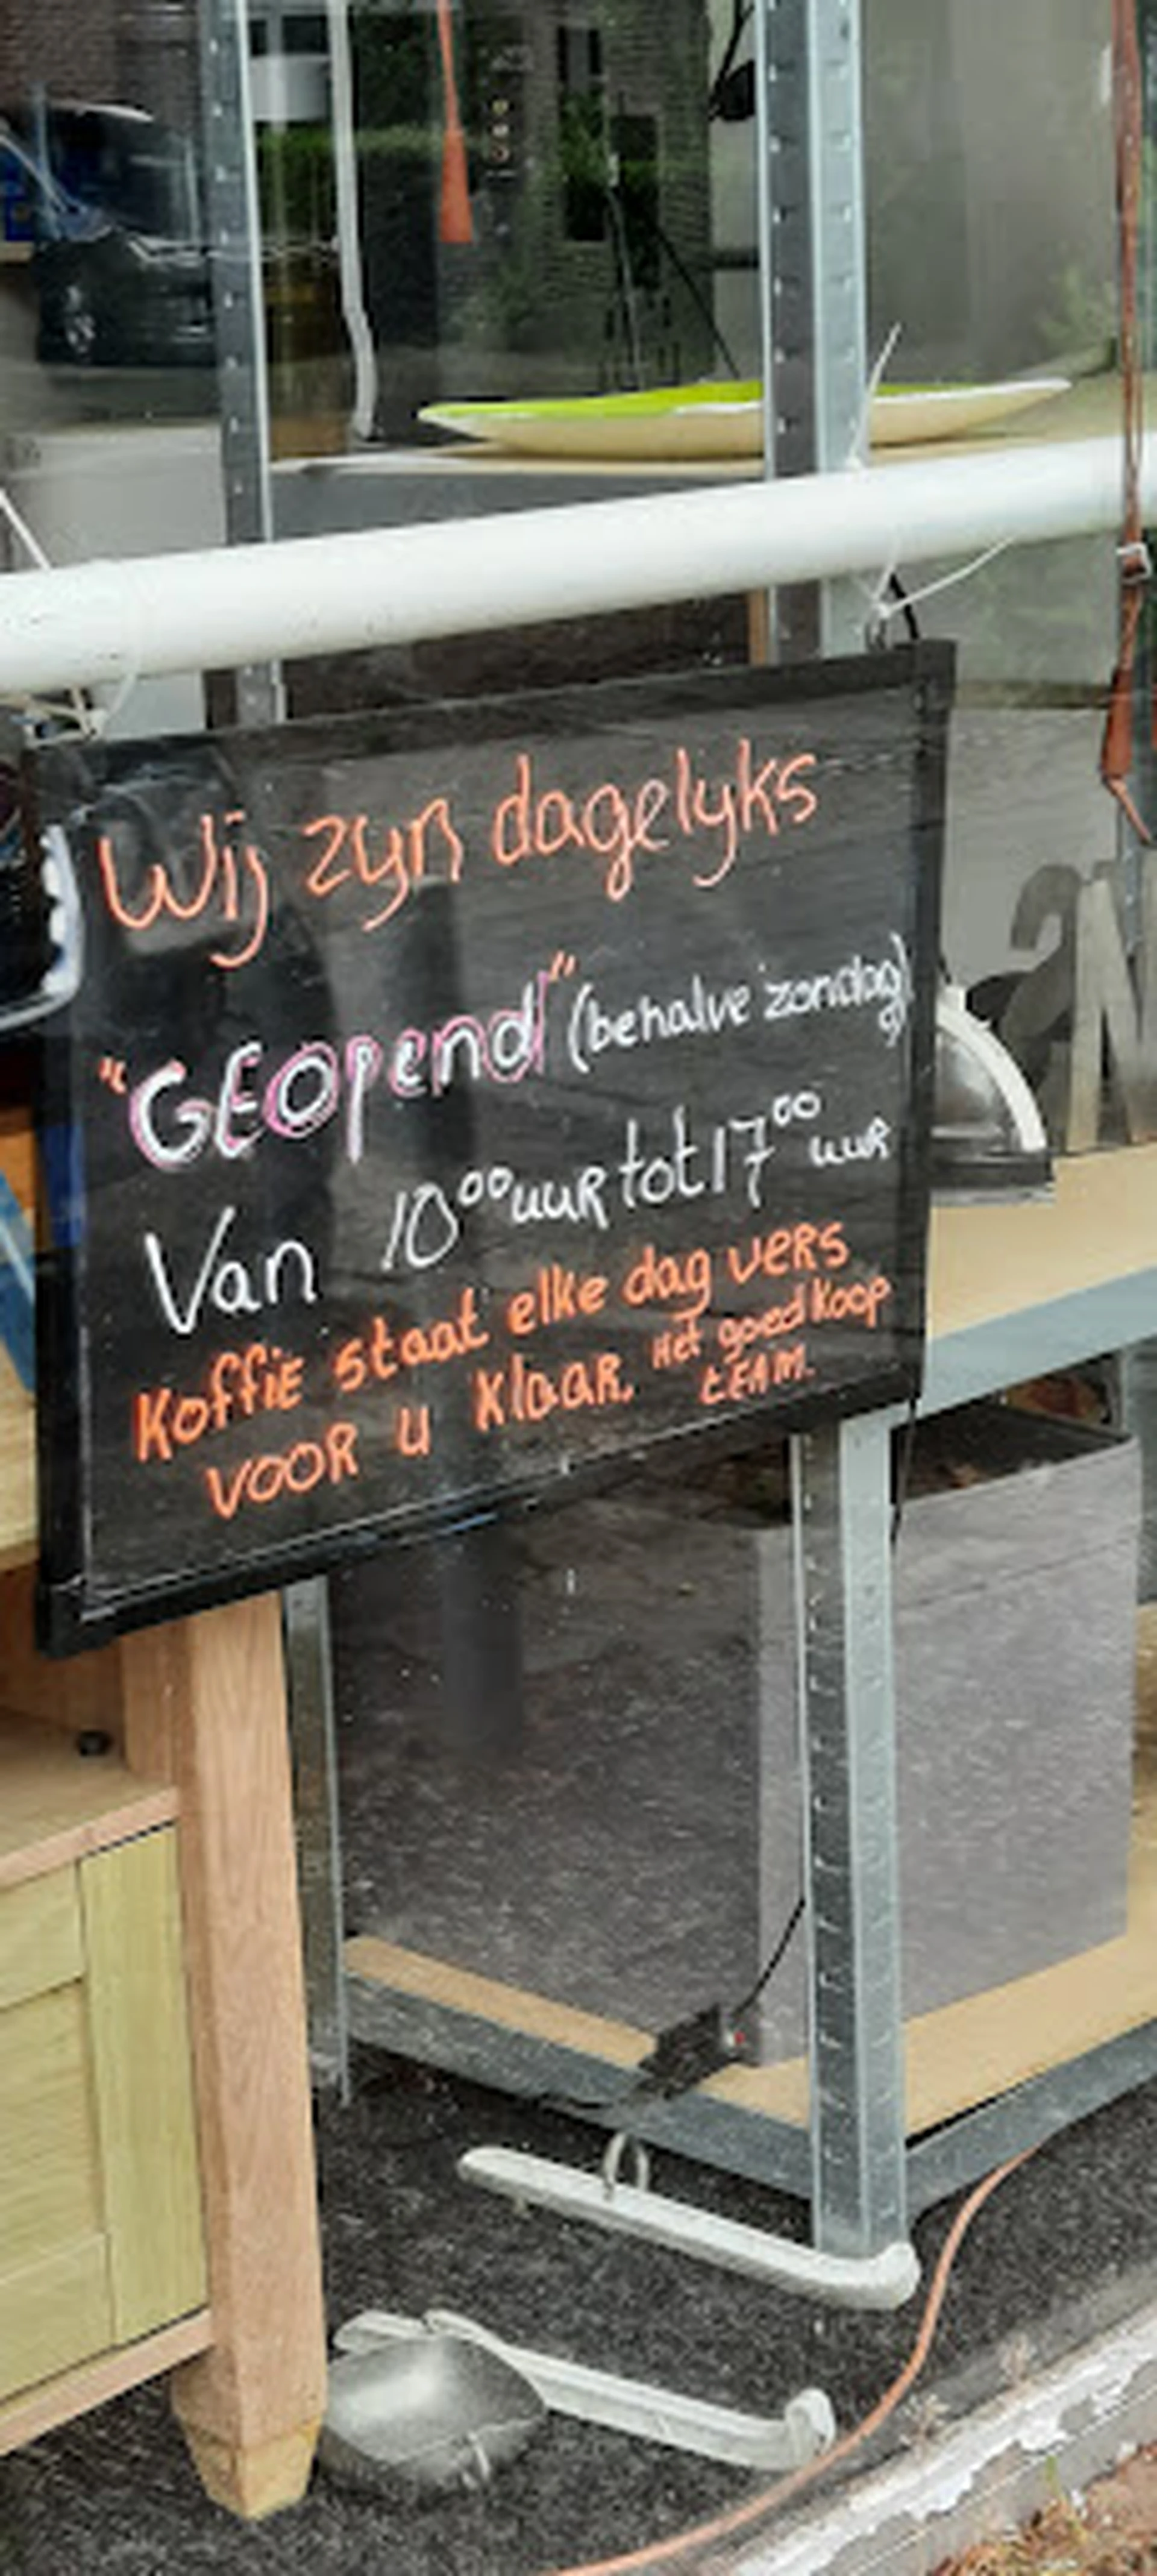 Wij zijn dagelijks
"GEOpend" (behalve zondag)
Van 10⁰⁰ uuR tot 17⁰⁰ uuR
Koffie staat elke dag veRs
vooR u klaaR. Het goedkoop
tEAM.
2N